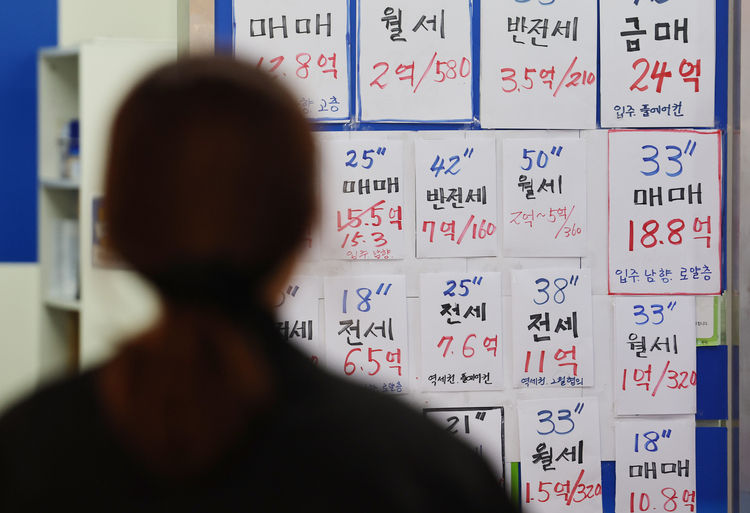 매매
2.8억
남향 고층
월세
2억/580
반전세
3.5억/210
급매
24억
입주.풀에어컨
25"
매매
15.5억
15.3
입주.남향
42"
반전세
7억/160
50"
월세
2억~5억
/360
33"
매매
18.8억
입주.남향.로얄층
18"
전세
6.5억
25"
전세
7.6억
역세권.풀에어컨
38"
전세
11억
33"
월세
1억/320
21"
33"
월세
1.5억/320
18"
매매
10.8억